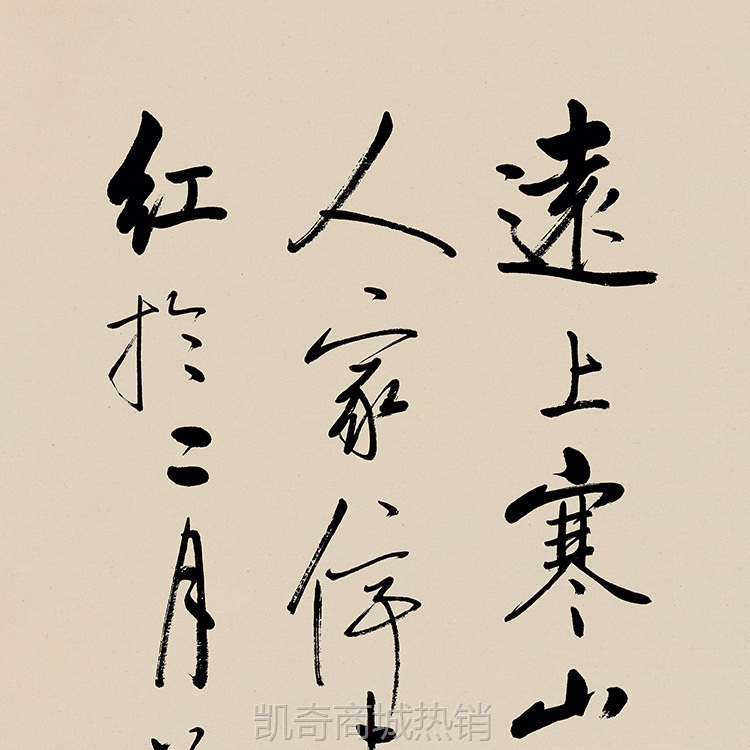 遠上寒山
人家停車
紅於二月
凯奇商城热销